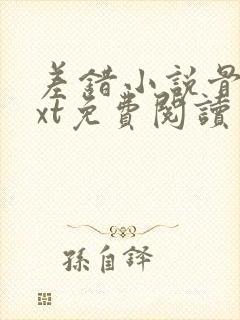 差錯小說最
xt免費閱讀
孫自鐸